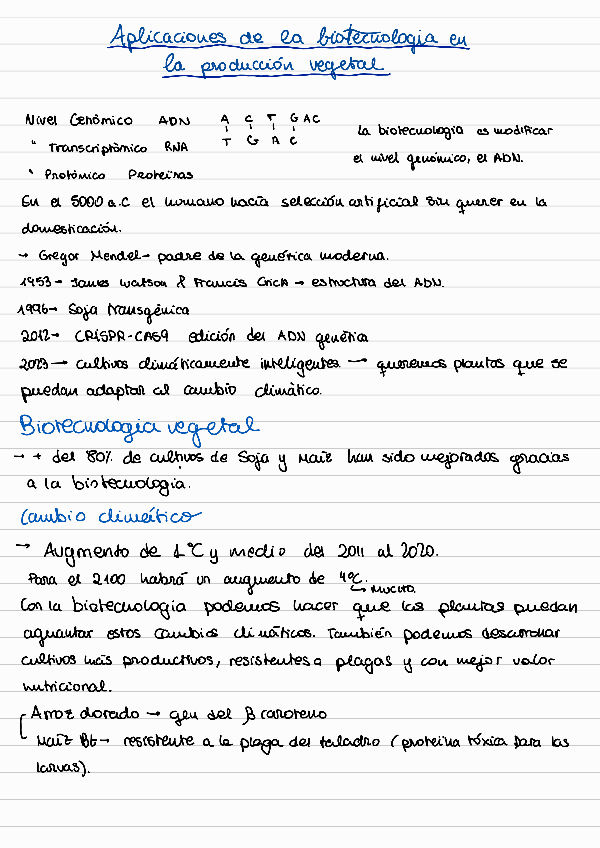 Aplicaciones de la biotecnologia en
la producción vegetal
Nivel Genómico ADN A C T G A C
T G A C
la biotecnologia es modificar
" Transcriptómico RNA
el nivel genómico, el ADN.
" Protómico Proteinas
En el 5000 a.C el humano hacía selección artificial sin querer en la
domesticación.
→ Gregor Mendel- padre de la genética moderna.
1953- James Watson & Francis Crick → estructura del ADN.
1996- Soja transgénica
2012- CRISPR-CAS9 edición del ADN genética
2023 → cultivos climáticamente inteligentes → queremos plantas que se
puedan adaptar al cambio climático.
Biotecnologia vegetal
→ + del 80% de cultivos de Soja y Maíz han sido mejorados gracias
a la biotecnologia.
Cambio climático
→ Augmento de 1ºC y medio del 2011 al 2020.
Para el 2100 habrá un augmento de 4ºC.
↳ MUCHO.
Con la biotecnologia podemos hacer que las plantas puedan
aguantar estos cambios climáticos. También podemos desarrollar
cultivos más productivos, resistentes a plagas y con mejor valor
nutricional.
Arroz dorado → gen del β caroteno
Maíz Bt → resistente a la plaga del taladro (proteína tóxica para las
larvas).